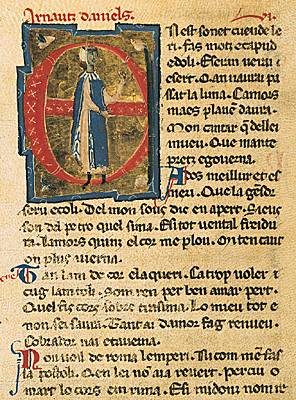 Arnautz daniels.
N est sonet cuende le
ri. Fas motz e capud
e doli. E serun uerai i
sert. Qan naurai pa
ssat la luna. Camors
maes plane daura.
Mon cantar qe de liei
mueu. Que mante
pretz e gouerna.
Ades meillur et es
meu. Que la gesor
seru e coli. Del mon sous dic en apert. Sieus
son del pe tro quel sima. E si tot vental freidu
ra. Lamors quins el cor me plou. On ten caut
on plus uierna.
Tan lam de cor e la queri. Ca trop uoler
cug lam toli. Som ren per ben amar pert.
Quel cors sobre trasima. Lo mieu tot e
non sei saura. Tant ai damor fag renueu.
Cobrador nai e tauerna.
Non uoil de roma lemperi. Ni com me fas
la postoli. Qen lei no aia reuert. Per cui o
mart lo cors em rima. E si midoni nom re